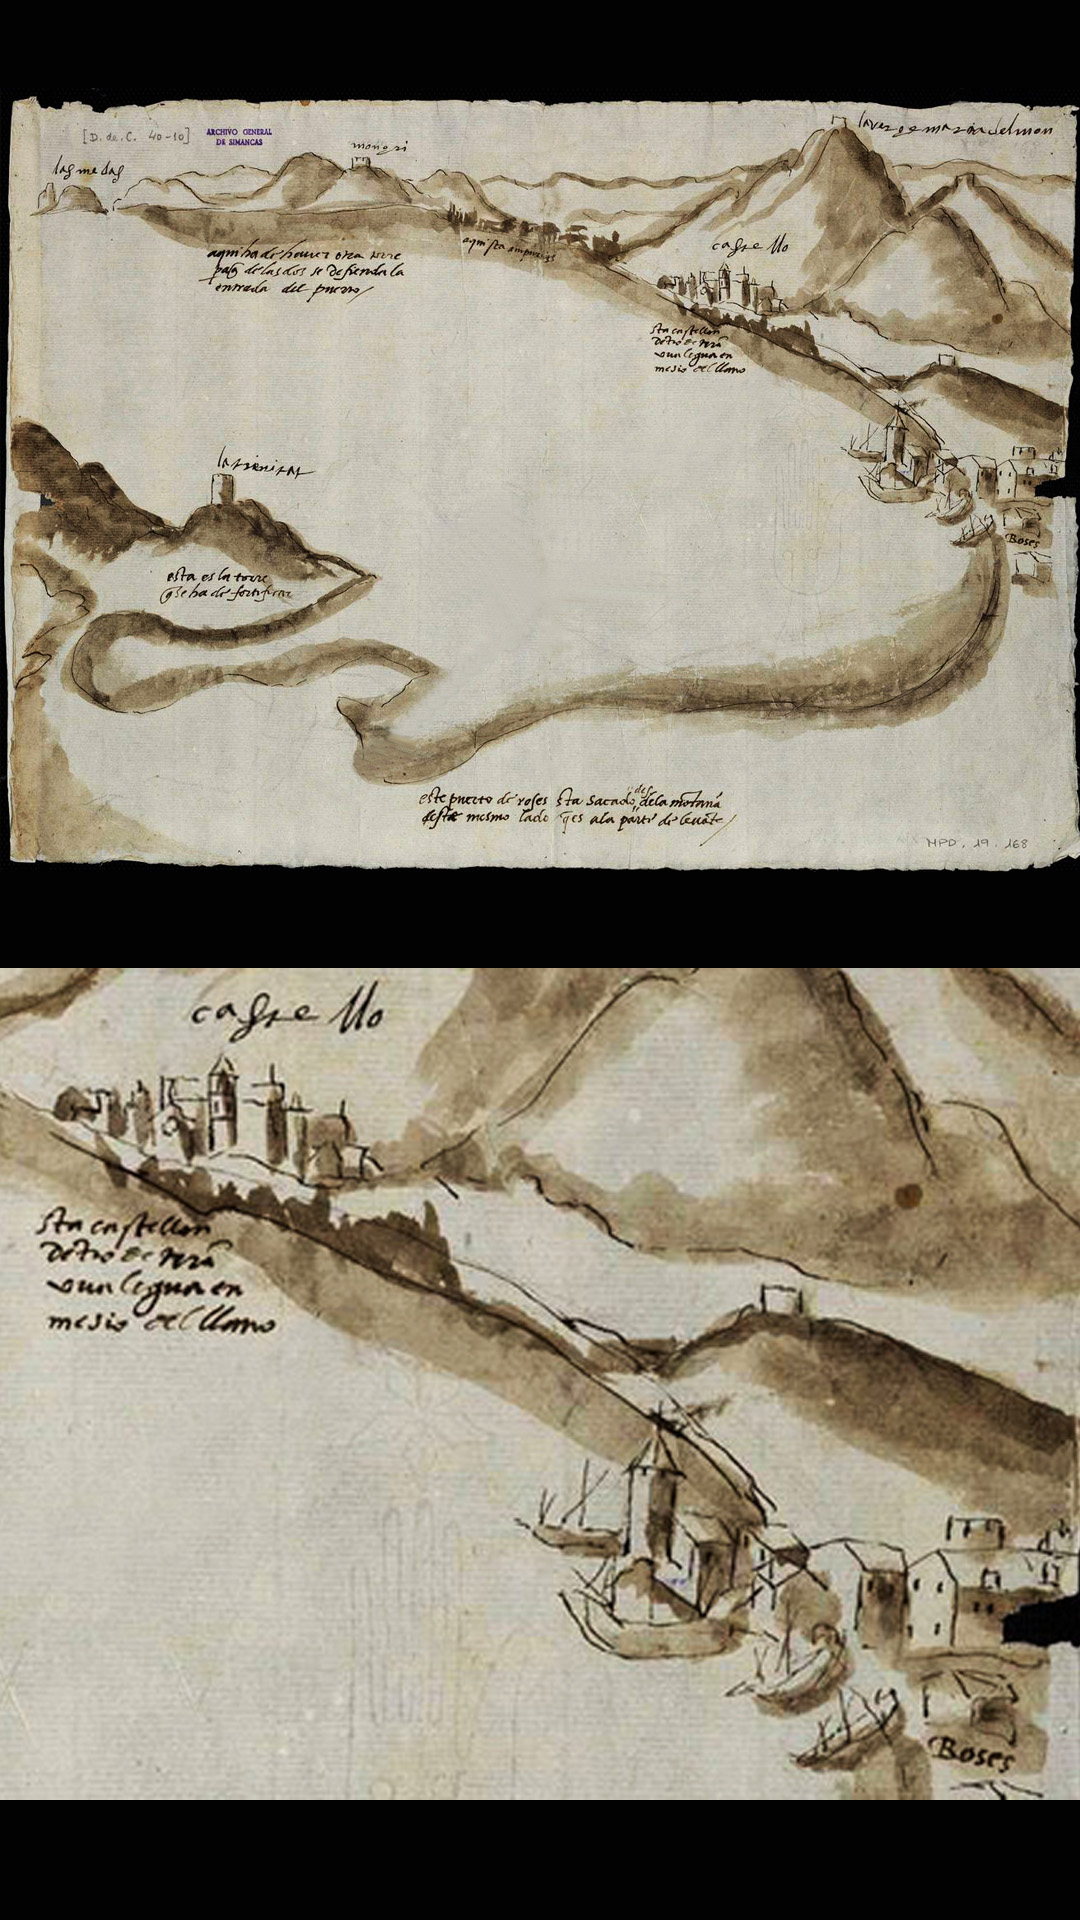 [D. de. C. 40-10]
ARCHIVO GENERAL
DE SIMANCAS
las medas
mongri
la verge maria del mon
aqui ha de haver otra torre
paq̃ de las dos se defienda la
entrada del puerto
aqui sta
castello
sta castellon
dẽtro de terã
una legua en
mesio del llano
la trinitat
esta es la torre
q̃ se ha de fortificar
Roses
este puerto de roses sta sacado des dela mõtanã
desta mesmo lado q̃es ala parte de levãte
MPD. 19. 168
castello
sta castellon
dẽtro de terã
una legua en
mesio del llano
Roses